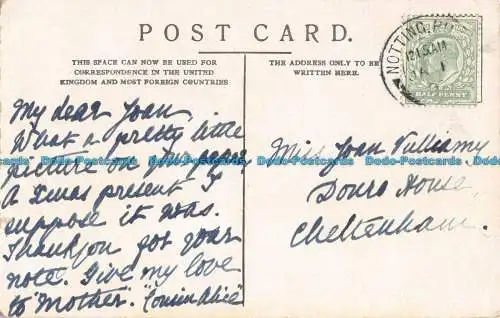 POST CARD.
THIS SPACE CAN NOW BE USED FOR
CORRESPONDENCE IN THE UNITED
KINGDOM AND MOST FOREIGN COUNTRIES
THE ADDRESS ONLY TO BE
WRITTEN HERE.
NOTTING
12.15AM
HALF PENNY
My dear Joan,
What a pretty little
picture on
A Xmas present I
suppose it was.
Thankyou for your
note. Give my love
to "Mother". "Cousin Alice"
Miss Joan Vulliamy
Douro House,
Cheltenham.
Dodo-Postcards Dodo-Postcards Dodo-Postcards Dodo-Postcards Dodo-Postcards